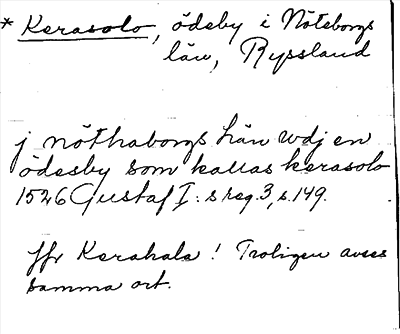 * Kerasolo, ödeby i Nöteborgs
län, Ryssland
j nöthaborgs hän wdj en
ödesby som kallas kerasolo
1526 Gustaf I:s reg. 3, s. 149.
Jfr Kerahala! Troligen avses
samma ort.